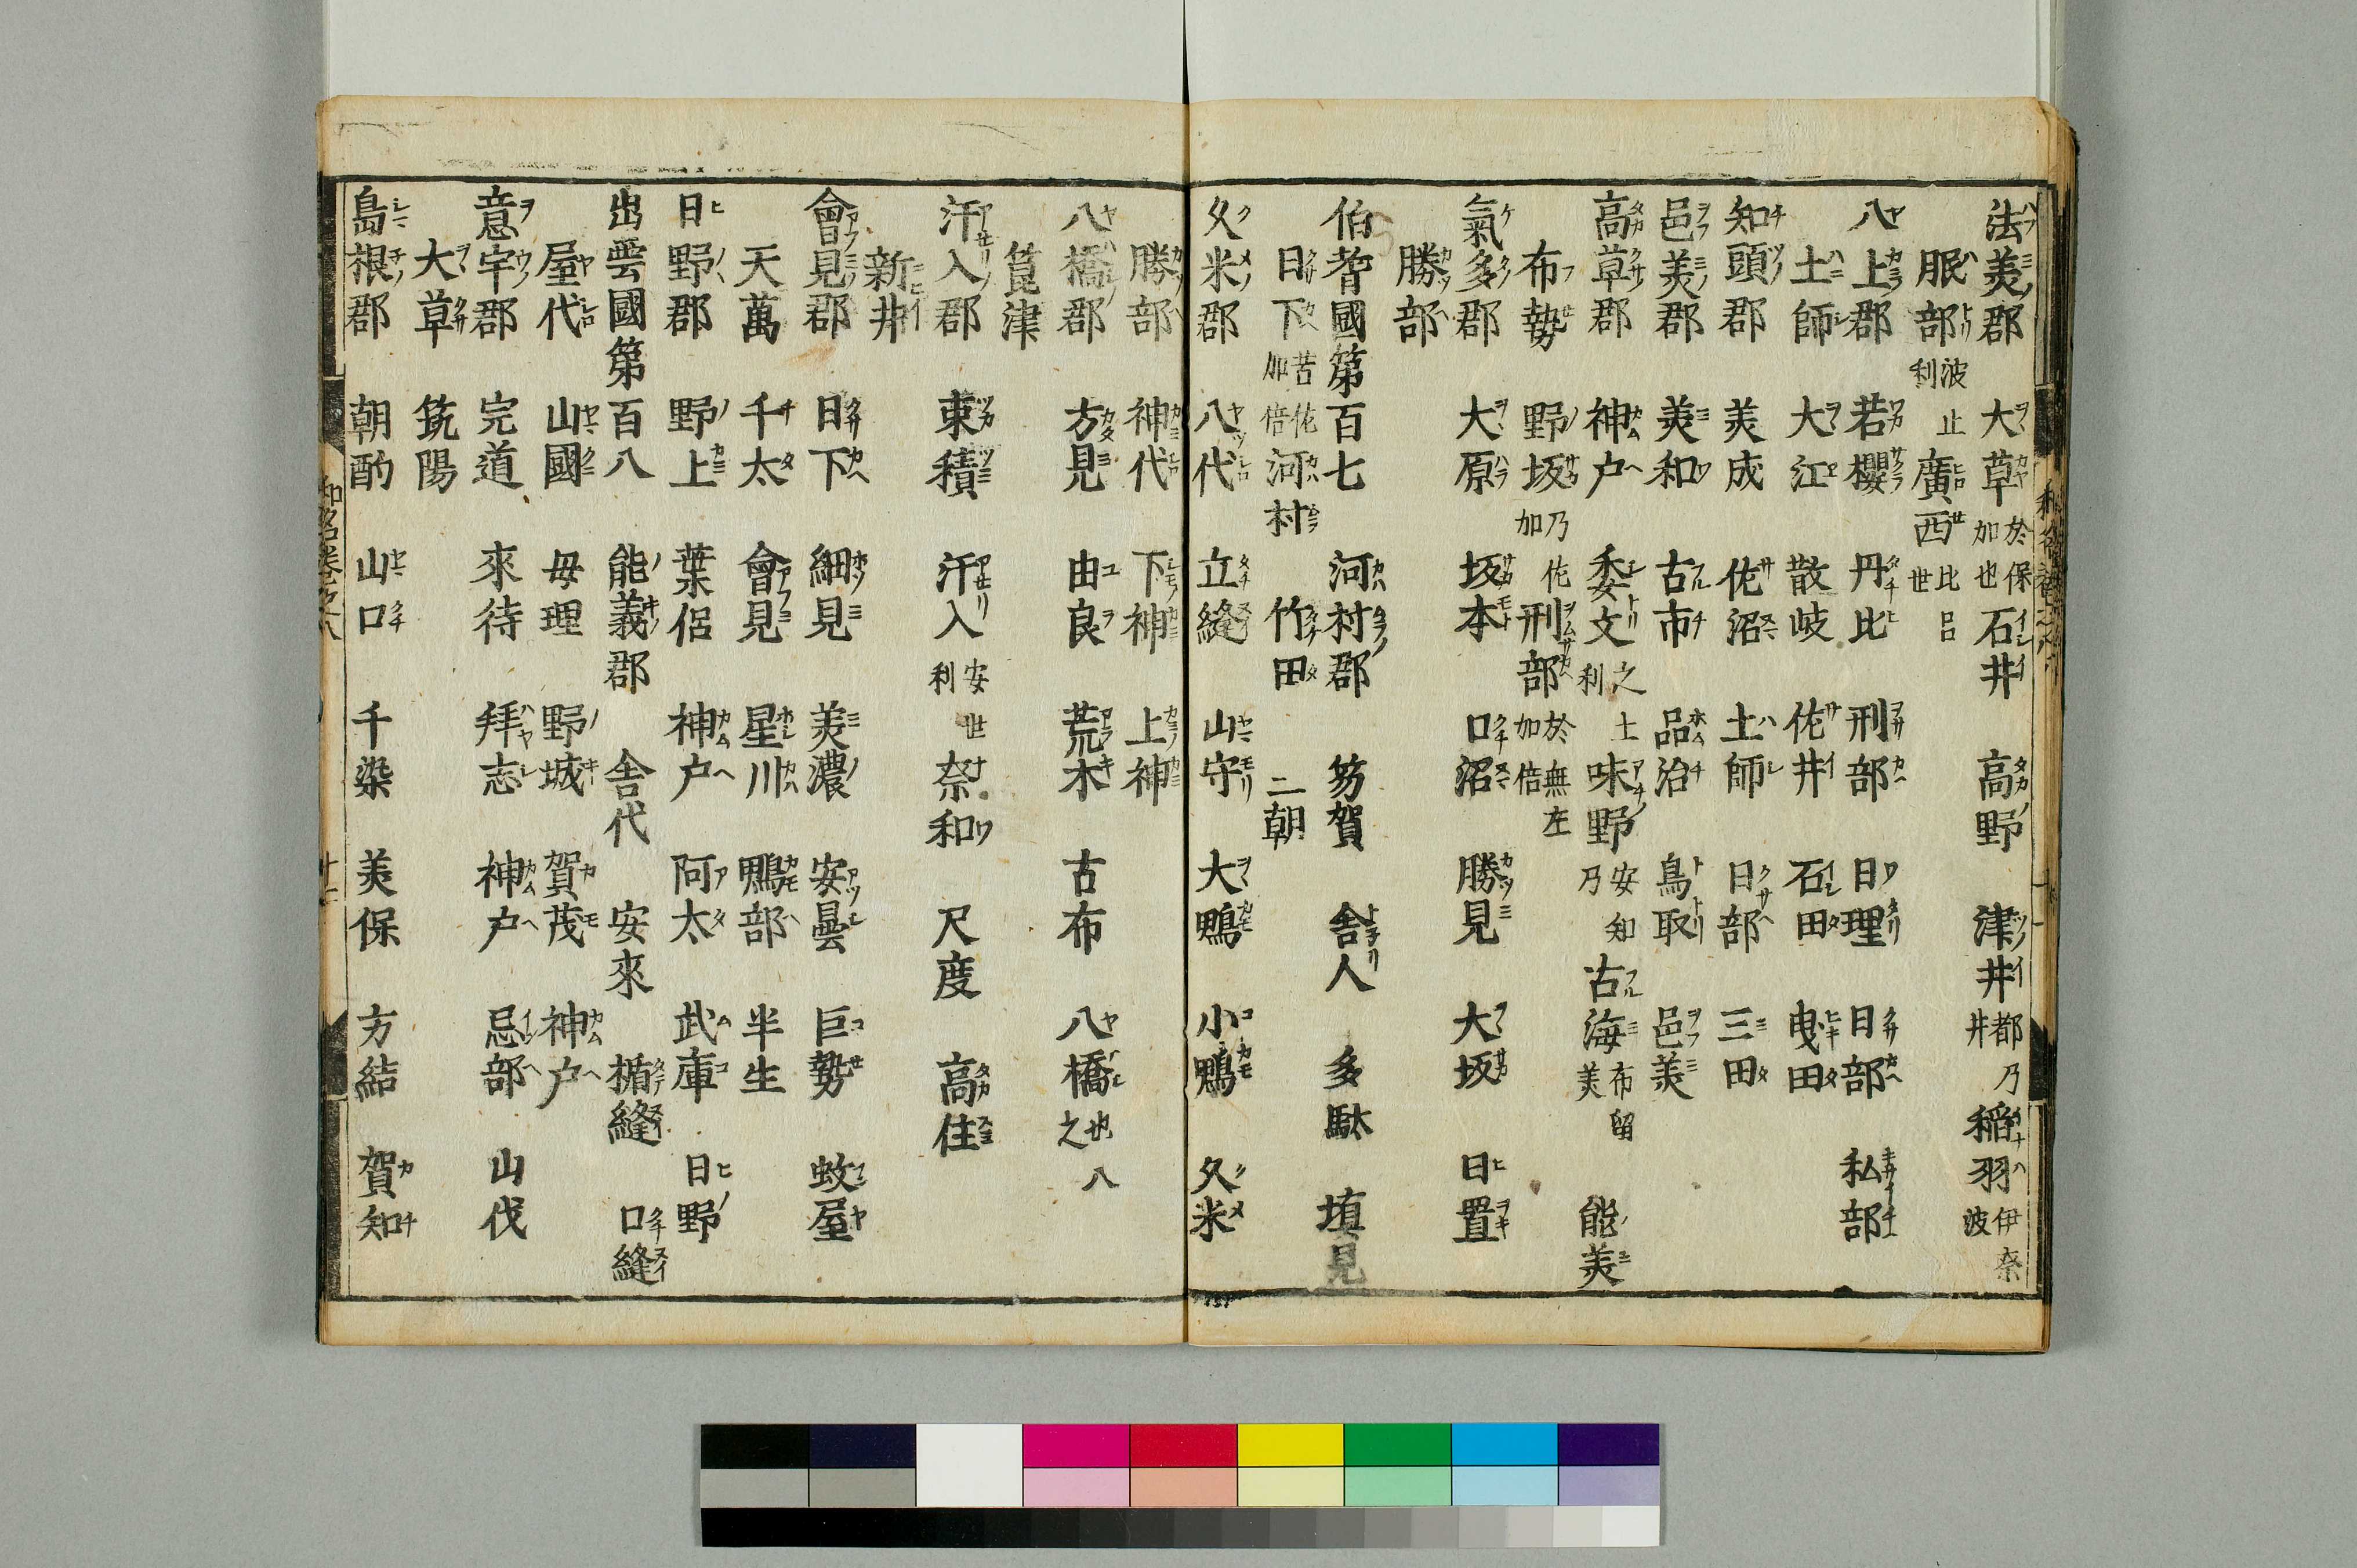 法美郡 大草 於保加也 石井 高野 津井 都乃井 稲羽 伊奈波
服部 波止利 廣西 比呂世
八上郡 若櫻 丹比 刑部 日理 日部 私部
土師 大江 散岐 佐井 石田 曳田
知頭郡 美成 佐沼 土師 日部 三田
邑美郡 美和 古市 品治 鳥取 邑美
高草郡 神戸 委文 之土利 味野 安知乃 古海 布留美 能美
布勢 野坂 乃佐加 刑部 於無左加倍
氣多郡 大原 坂本 口沼 勝見 大坂 日置
勝部
伯耆國第百七 河村郡 笏賀 舎人 多駄 埴見
日下 苦佐加倍 河村 竹田 二朝
久米郡 八代 立縫 山守 大鴨 小鴨 久米
勝部 神代 下神 上神
八橋郡 方見 由良 荒木 古布 八橋 也八之
筥津
汗入郡 束積 汗入 安世利 奈和 尺度 高住
新井
會見郡 日下 細見 美濃 安曇 巨勢 蚊屋
天萬 千太 會見 星川 鴨部 半生
日野郡 野上 葉侶 神戸 阿太 武庫 日野
出雲國第百八 能義郡 舎代 安來 楯縫 口縫
屋代 山國 母理 野城 賀茂 神戸
意宇郡 完道 來待 拜志 神戸 忌部 山伐
大草 筑陽
島根郡 朝酌 山口 千染 美保 方結 賀知